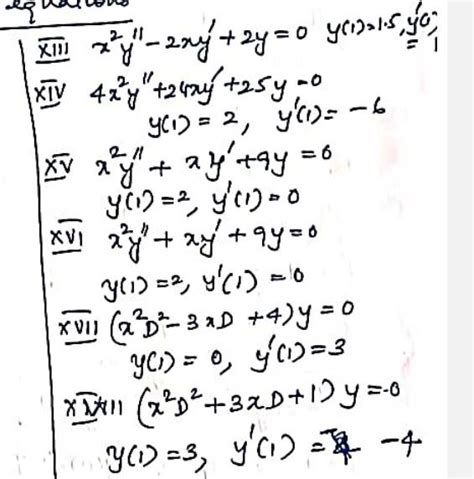 equations
XIII x²y'' - 2xy' + 2y = 0 y(1)=1.5, y'(1) = 1
XIV 4x²y'' + 24xy' + 25y = 0
y(1) = 2, y'(1) = -6
XV x²y'' + xy' + 9y = 0
y(1) = 2, y'(1) = 0
XVI x²y'' + xy' + 9y = 0
y(1) = 2, y'(1) = 0
XVII (x²D² - 3xD + 4)y = 0
y(1) = 0, y'(1) = 3
XVIII (x²D² + 3xD + 1)y = 0
y(1) = 3, y'(1) = -4